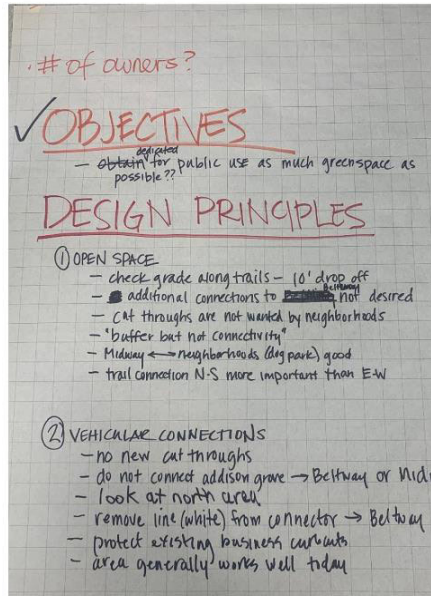 · # of owners?
✓ OBJECTIVES
dedicated
— obtain for public use as much greenspace as
possible??
DESIGN PRINCIPLES
① OPEN SPACE
— check grade along trails — 10' drop off
Beltway
— additional connections to not desired
— cut throughs are not wanted by neighborhoods
— "buffer but not connectivity"
— Midway ⟷ neighborhoods (dog park) good
— trail connection N-S more important than E-W
② VEHICULAR CONNECTIONS
— no new cut throughs
— do not connect addison grove → Beltway or Mid
— look at north area
— remove line (white) from connector → Beltway
— protect existing business curbcuts
— area generally works well today